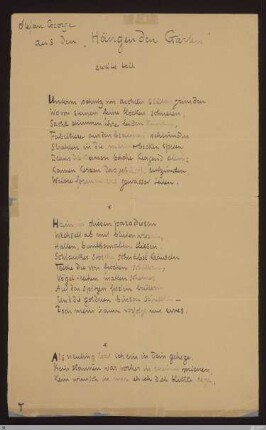 Stefan George
aus den „Hängenden Gärten“
zweiter teil
Unterm schutz von dichten blättergründen
Wo von sternen feine flocken schneien
Sachte stimmen ihre leiden künden
Fabeltiere aus den braunen schlünden
Strahlen in die marmorbecken speien
Draus die kleinen bäche klagend eilen
Kamen kerzen das gesträuch entzünden
Weisse formen das gewässer teilen.
*
Hain in diesen paradiesen
Wechselt ab mit blütenwiesen
Hallen, buntbemalten fliesen
Schlanker störche schnäbel kräuseln
Teiche die von fischen schillern
Vögel-reihen matten scheines
Auf den firsten trillern
Und die goldnen binsen säuseln –
Doch mein traum verfolgt nur eines.
*
Als neuling trat ich ein in dein gehege
Kein staunen war vorher in meinen mienen
Kein wunsch in mir eh ich dich blickte rege